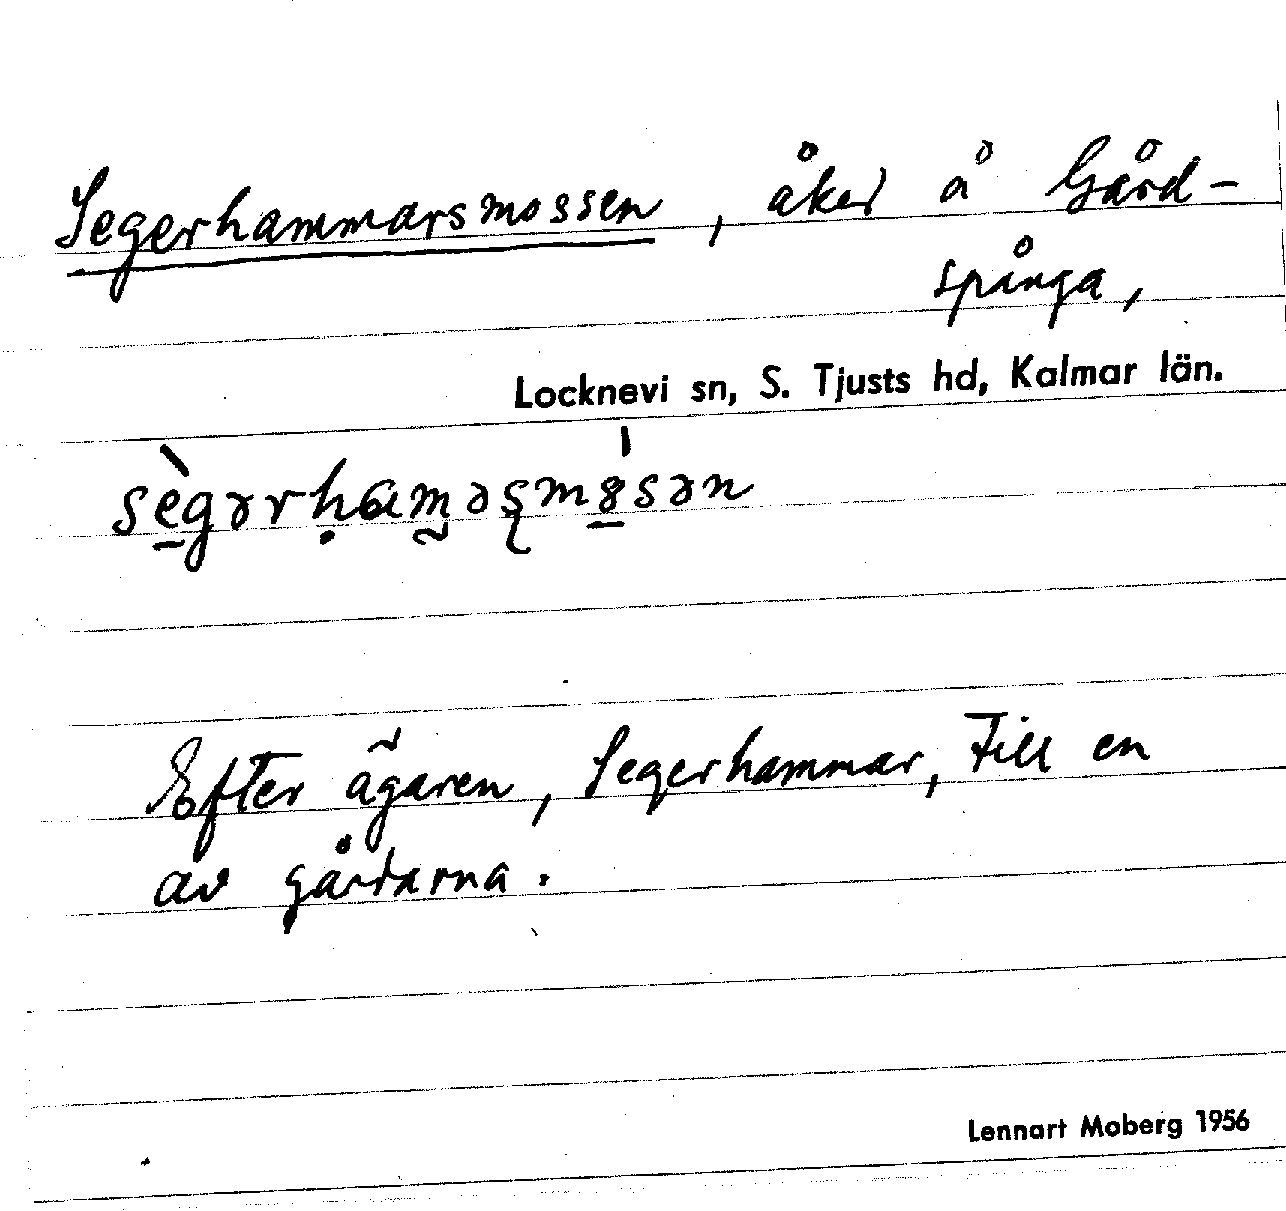 Segerhammarsmossen, åker å Gård-
spånga,
Locknevi sn, S. Tjusts hd, Kalmar län.
Efter ägaren, Segerhammar, till en
av gårdarna.
Lennart Moberg 1956